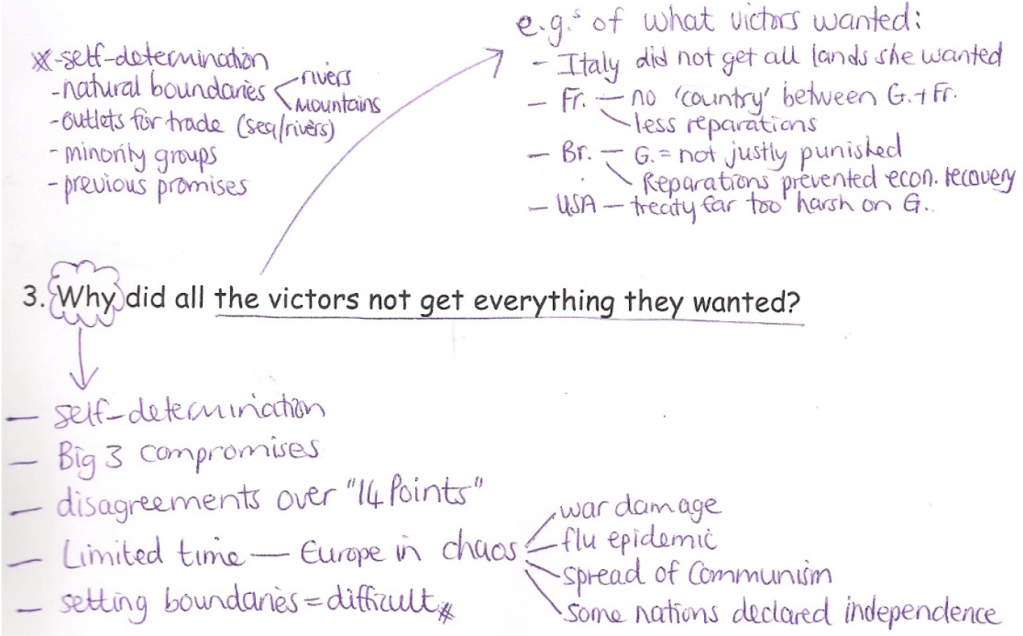 * -self-determination
-natural boundaries
rivers
mountains
-outlets for trade (sea/rivers)
- minority groups
- previous promises
e.g.s of what victors wanted:
- Italy did not get all lands she wanted
- Fr. - no 'country' between G. + Fr.
less reparations
- Br. - G. = not justly punished
Reparations prevented econ. recovery
- USA - treaty far too harsh on G..
3. Why did all the victors not get everything they wanted?
- self-determination
- Big 3 compromises
- disagreements over "14 Points"
- Limited time - Europe in chaos
war damage
flu epidemic
spread of Communism
some nations declared independence
- setting boundaries = difficult *